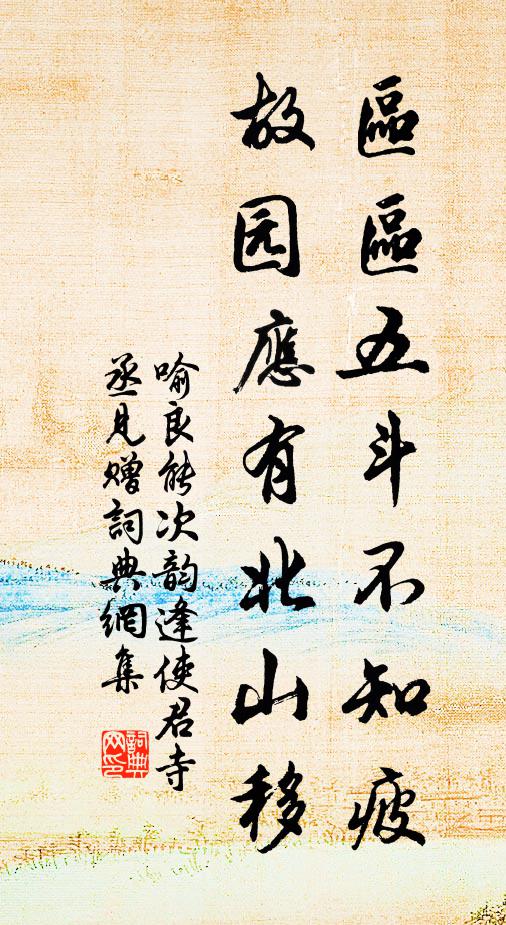 區區五斗不知疲
故园應有北山移
喻良能次韵逢使君寺
丞見贈詞典網集
詞典网印